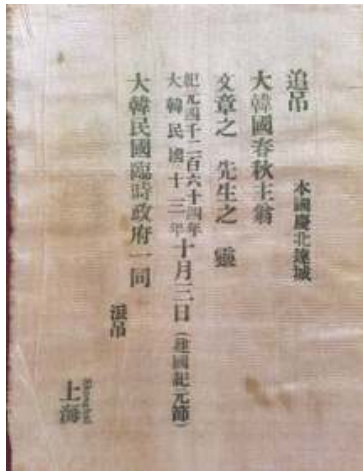 追吊
本國慶北達城
大韓國春秋主翁
文章之 先生之 靈
紀元四千二百六十四年
大韓民國十三年
十月三日(建國紀元節)
大韓民國臨時政府一同
泣吊
上海
Shanghai